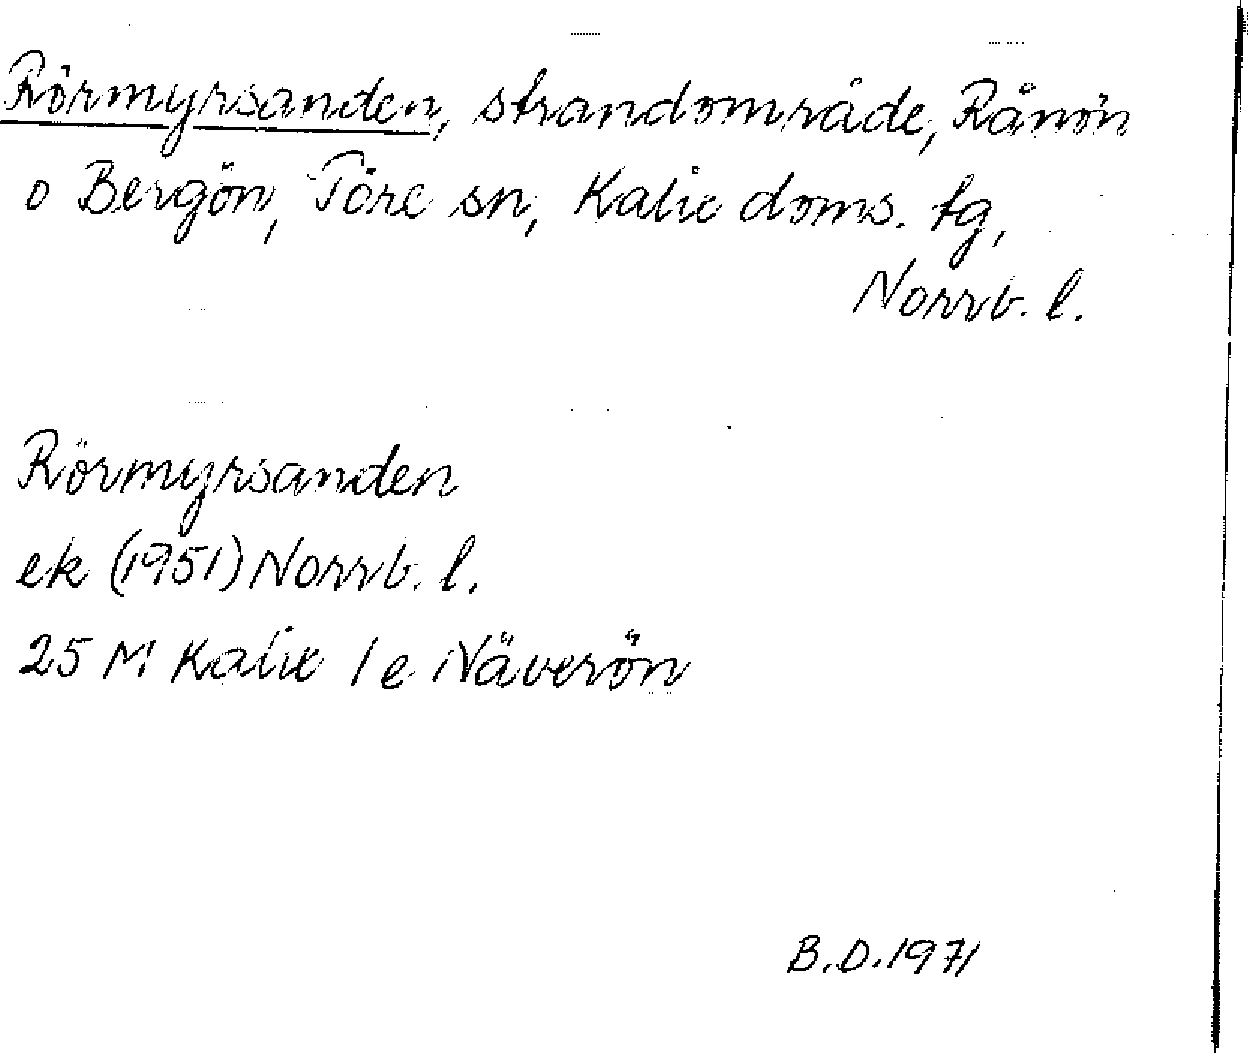 Rörmyrsanden, strandområde, Rånön
o Bergön, Töre sn, Kalix doms. tg,
Norrb. l.
Rörmyrsanden
ek (1951) Norrb. l.
25 M Kalix 1 e Näverön
B.D. 1971